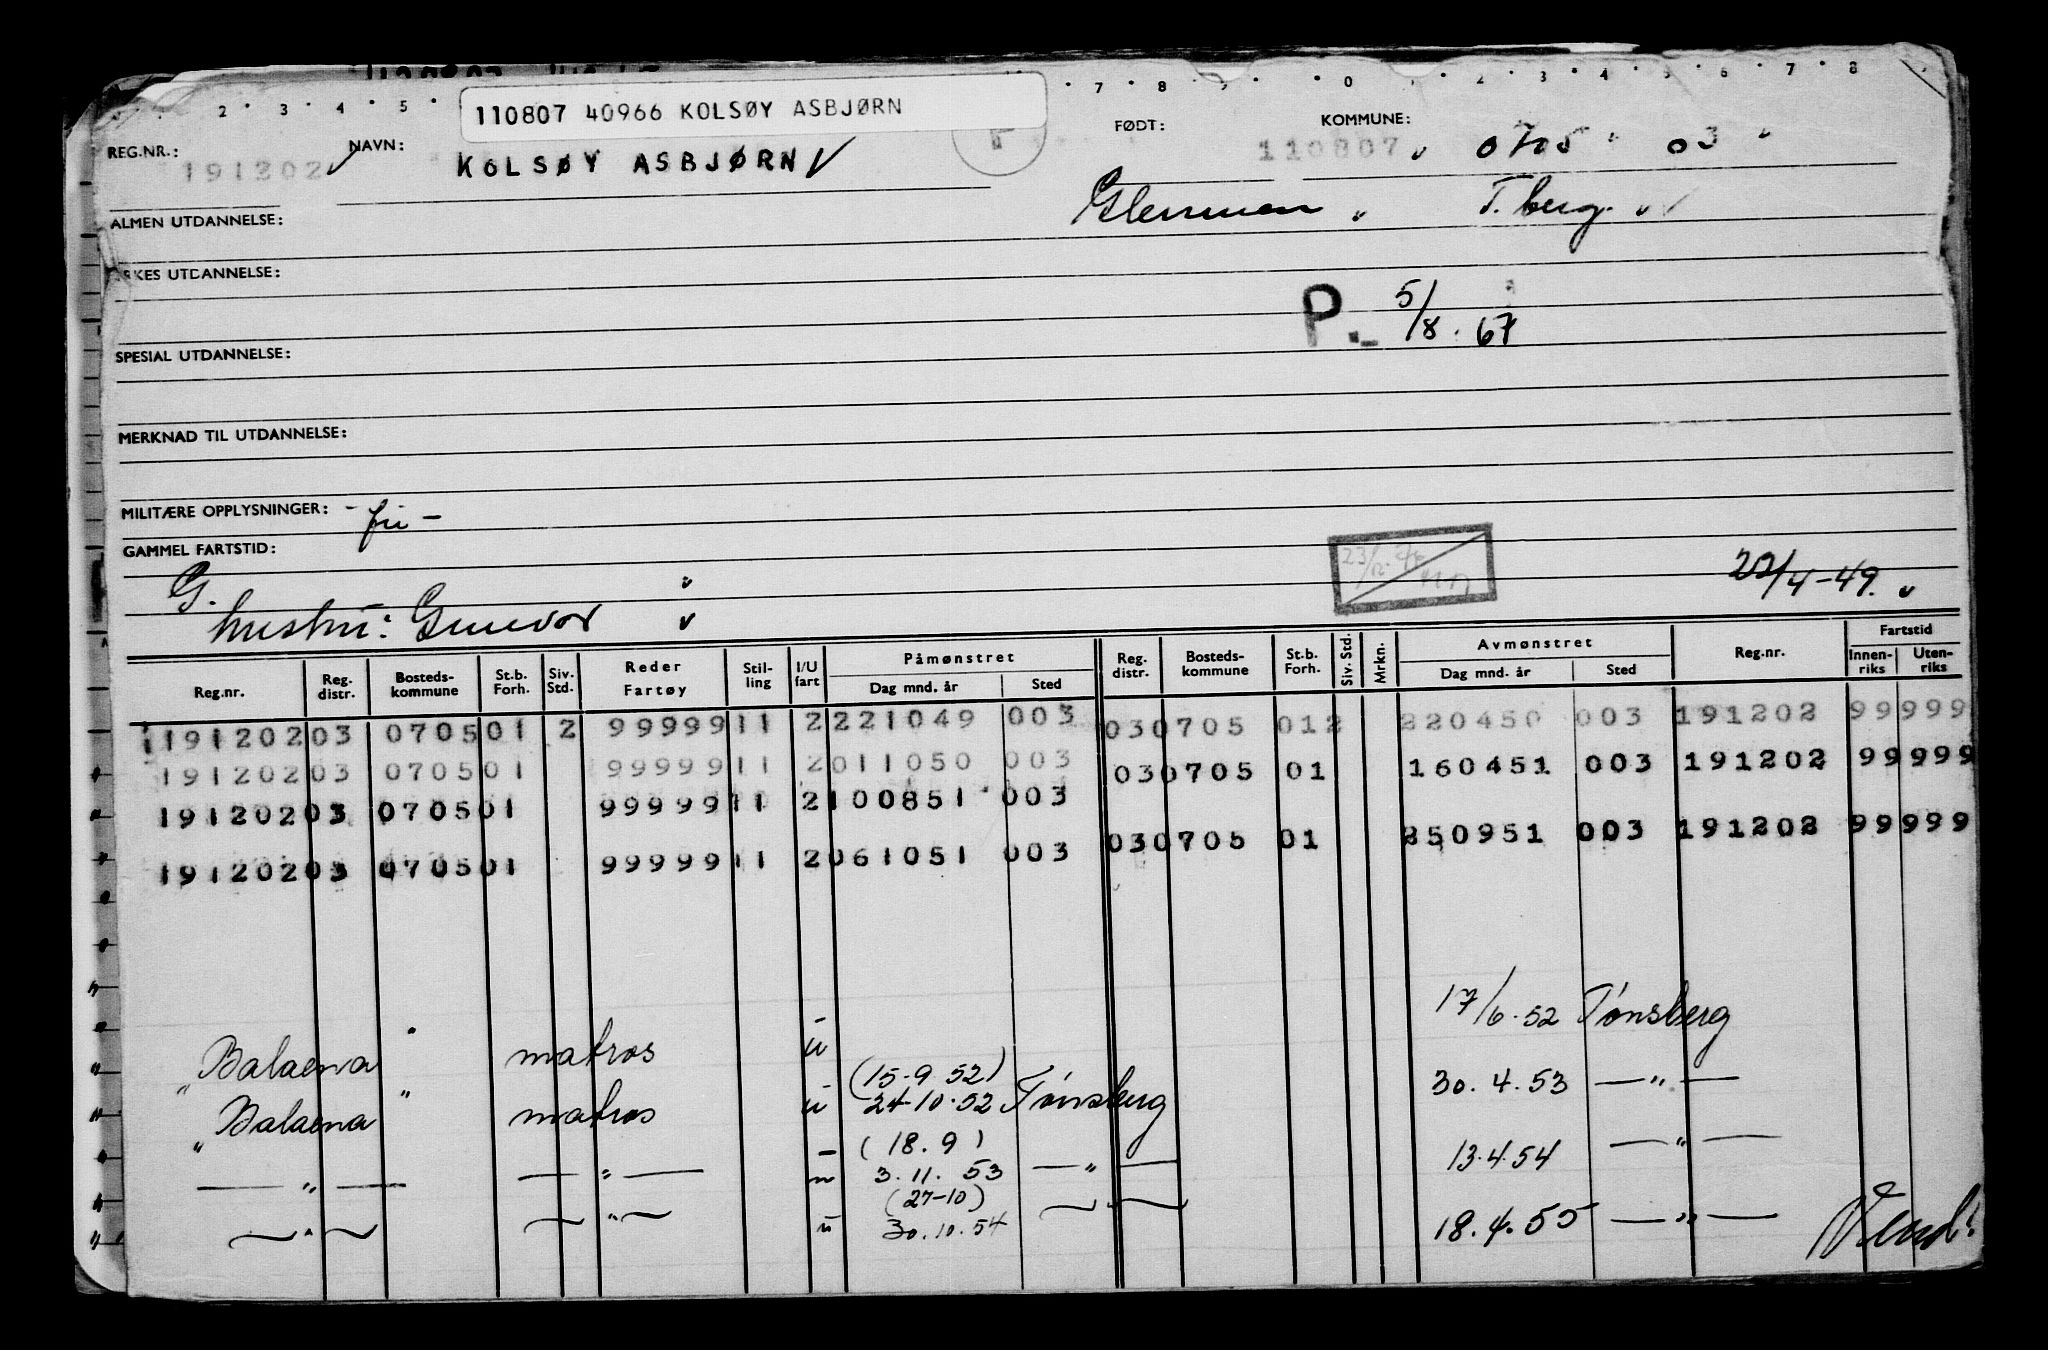 2 · 3 · 4 · 5 · 7 · 8 · 9 · 0 · 2 · 3 · 4 · 5 · 6 · 7 · 8
110807 40966 KOLSØY ASBJØRN
REG.NR.: 191202 NAVN: KOLSØY ASBJØRN FØDT: 110807 KOMMUNE: 0705 03
ALMEN UTDANNELSE: T.berg.
RKES UTDANNELSE:
P. 5/8. 67
SPESIAL UTDANNELSE:
MERKNAD TIL UTDANNELSE:
MILITÆRE OPPLYSNINGER: - fri -
GAMMEL FARTSTID:
G. 22/4-49.
hustru: Gunvor
Reg.nr. Reg. distr. Bosteds-kommune St.b. Forh. Siv. Std. Reder Fartøy Stil-ling I/U fart Påmønstret Dag mnd. år Sted Reg. distr. Bosteds-kommune St.b. Forh. Siv. Std. Mrkn. Avmønstret Dag mnd. år Sted Reg.nr. Fartstid Innen-riks Uten-riks
191202 03 0705 01 2 99999 11 2 221049 003 03 0705 01 2 220450 003 191202 99 999
191202 03 0705 01 99999 11 2 011050 003 03 0705 01 160451 003 191202 99 999
191202 03 0705 01 99999 11 2 100851 003 03 0705 01 250951 003 191202 99 999
191202 03 0705 01 99999 11 2 061051 003
"Balaena" matros u 17/6.52 Tønsberg
"Balaena" matros u (15.9.52) 24-10.52 Tønsberg 30.4.53 — " —
— " — — " — u (18.9) 3.11.53 — " — 13.4.54 — " —
— " — — " — u (27-10) 30.10.54 — " — 18.4.55 — " —
Vend!